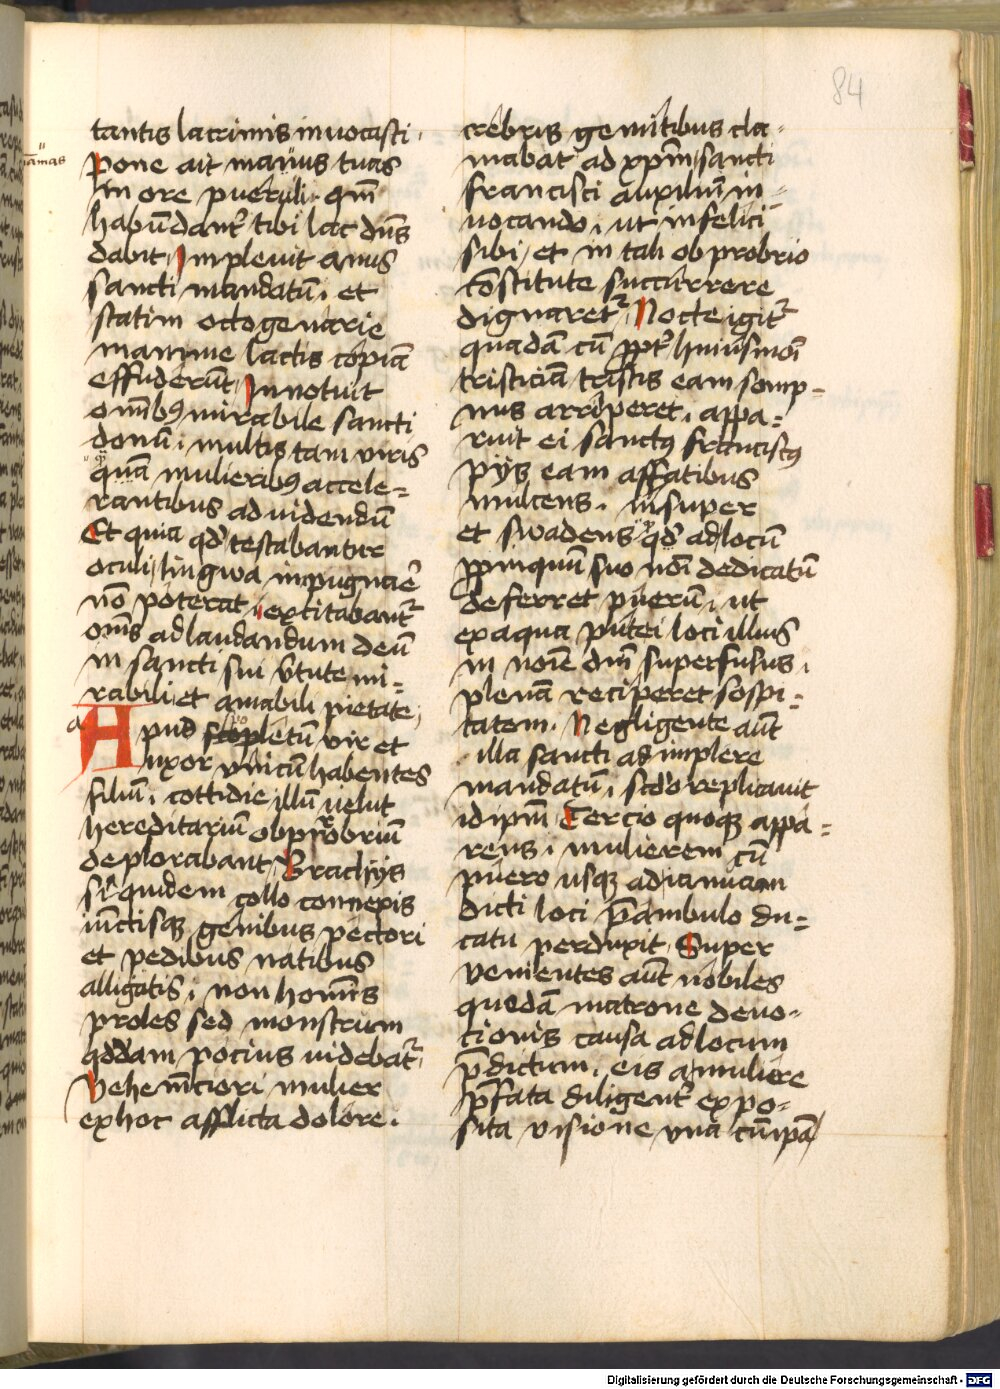 84
tantis lacrimis inuocasti.
mamas
Pone ait manus tuas
in ore pueruli. qm̄
habūdant᷑ tibi lac dn̄s
dabit. Impleuit anus
sancti mandatū, et
statim octogenarie
mamme lactis copiā
effuderūt. Innotuit
om̄ibꝫ mirabile sancti
donū, multis tam viris
quā mulieribꝫ accele=
rantibus ad uidendū
Et quia qd̄ testabantur
oculi, lingwa inpugnare
nō poterat, extitabant᷑
om̄s ad laudandum deū
in sancti sui v̄tute mi=
rabili et amabili pietate,
a
Apud scopletū vir et
uxor vnicū habentes
filiū, cottidie illū uelut
hereditariū obprobriū
deplorabant. Brachijs
siquidem collo connexis
iūctisqꝫ genibus pectori
et pedibus natibus
alligatis, non homīs
proles sed monstrum
qddam pocius uidebat᷑.
Vehemēciori mulier
ex hoc afflicta dolore.
crebris gemitibus cla=
mabat ad xpm̄, sancti
francisci auxiliū in=
uocando, ut infelici
sibi, et in tali obprobrio
cōstitute succurrere
dignaret᷑. Nocte igit᷑
quadā cū ꝓpt᷑ huiusmōi
tristiciā tristis eam somp=
nus arriperet, appa=
ruit ei sanctꝯ franciscꝯ
pijs eam affatibus
mulcens. insuper
et swadens qd̄ ad locū
ꝓpinquū suo nōi dedicatū
deferret puerū, ut
ex aqua putei loci illius
in noīe dn̄i superfusus,
plenā reciperet sospi=
tatem. Negligente aūt
illa sancti adimplere
mandatū, scd̄o replicauit
id ipm̄. Tercio quoqꝫ appa=
rens, mulierem cū
puero usqꝫ ad ianuam
dicti loci p̄ambulo du=
catu perduxit. Super
venientes aūt nobiles
quedā matrone deuo=
cionis causa ad locum
p̄dictum, eis a muliere
p̄fata diligent᷑ expo=
sita visione, vna cū ipā
Digitalisierung gefördert durch die Deutsche Forschungsgemeinschaft - DFG